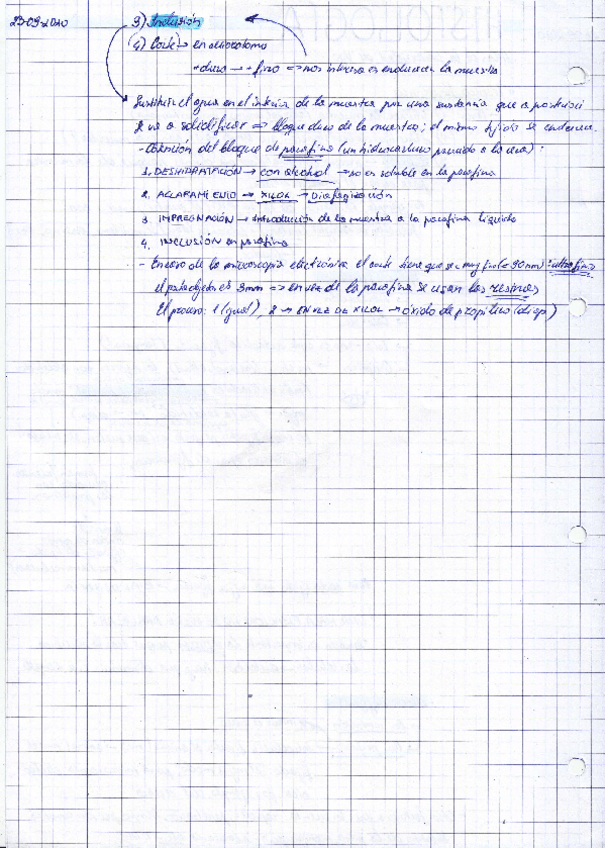 23-09-2020
3) Inclusión
(4) Corte) → en microtomo
+ duro → + fino => nos interesa es endurecer la muestra
Sustituir el agua en el interior de la muestra por una sustancia que a posteriori
se va a solidificar => bloque duro de la muestra; el mismo tejido se endurece.
- Obtención del bloque de parafina (un hidrocarburo parecido a la cera):
1. DESHIDRATACIÓN → con alcohol → no es soluble en la parafina
2. ACLARAMIENTO → XILOL → Diafanización
3. IMPREGNACIÓN → introducción de la muestra a la parafina líquida
4. INCLUSIÓN en parafina
- En caso de la microscopía electrónica el corte tiene que ser muy fino (< 90 nm) = ultrafino
el portaobjetos es 3mm => en vez de la parafina se usan las resinas
El proceso: 1 (igual), 2 → EN VEZ DE XILOL → óxido de propileno